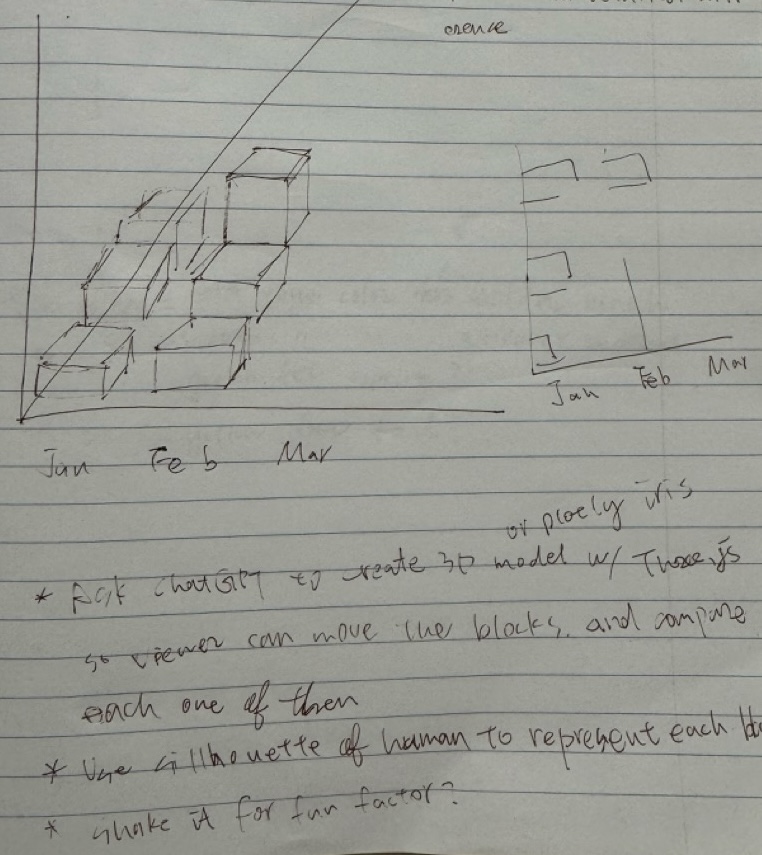 erence
Jan Feb Mar
Jan Feb Mar
or ploely iris
* Ask chatGPT to create 3D model w/ Three.js
so viewer can move the blocks. and compare
each one of them
* Use sillhouette of human to represent each
* Shake it for fun factor?